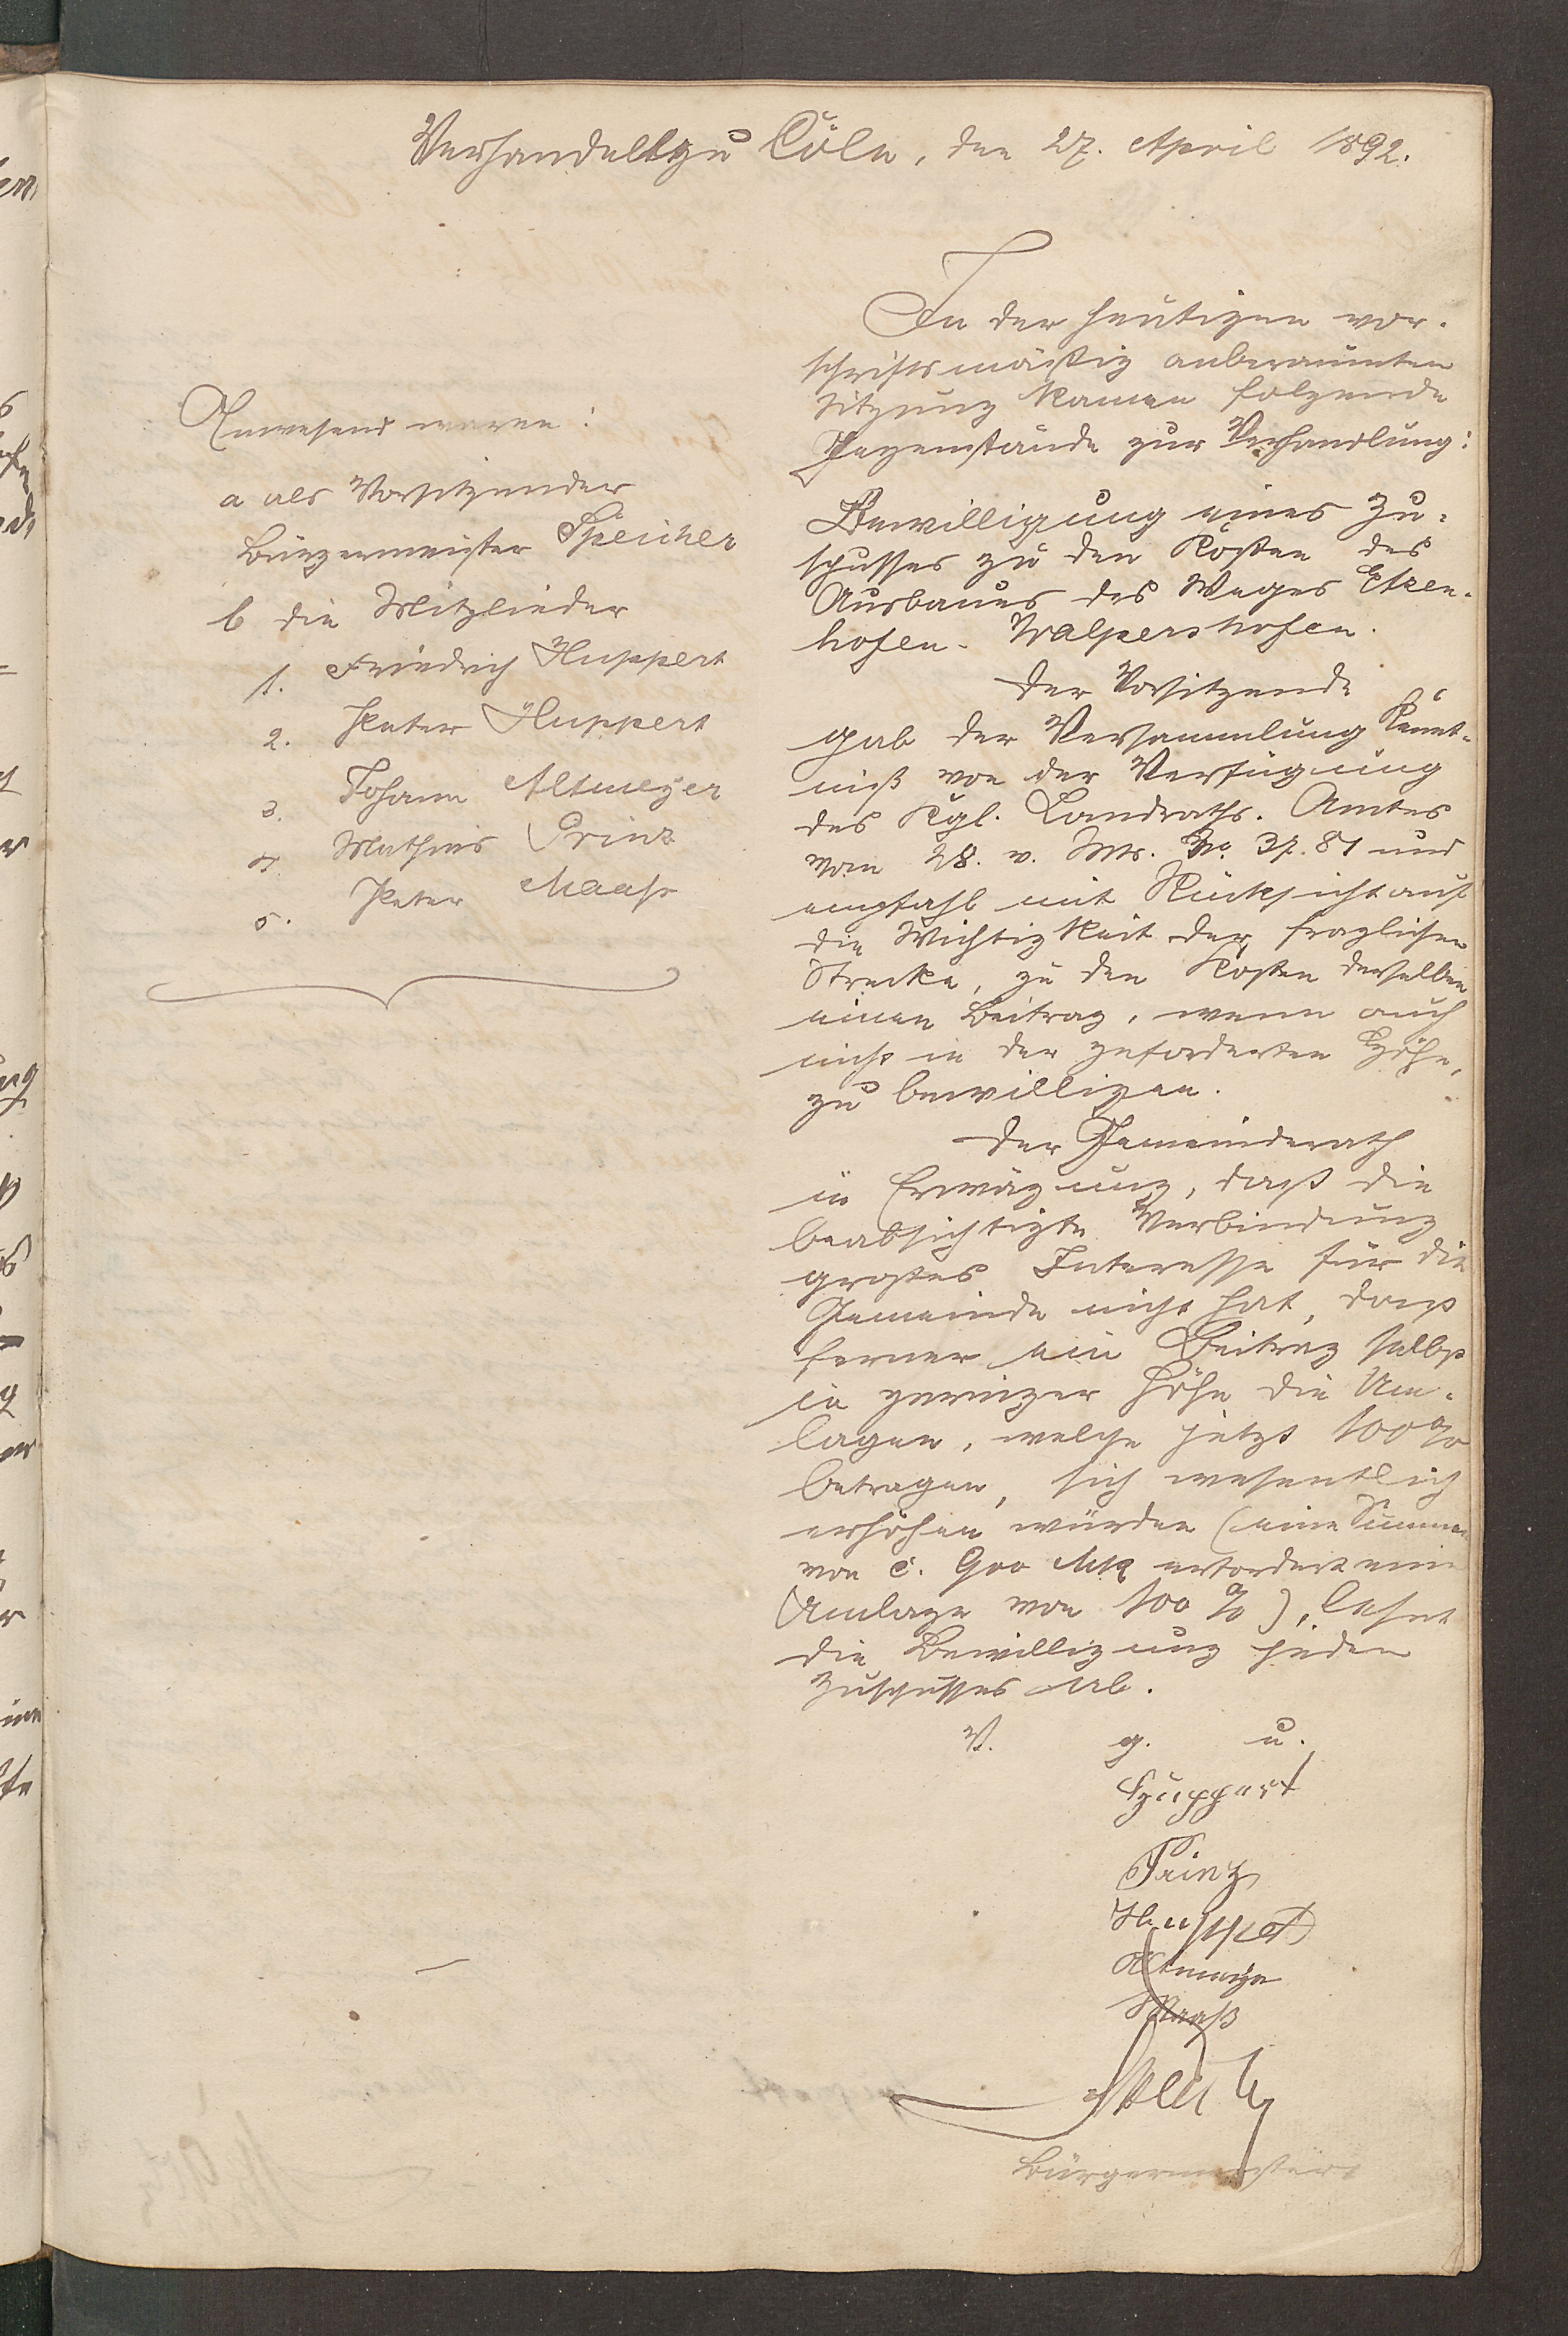 Verhandelt zu Cöln, den 27. April 1892.
Anwesend waren:
a als Vorsitzender
Bürgermeister Speicher
b die Mitglieder
1. Friedrich Huppert
2. Peter Huppert
3. Johann Altmeyer
4. Mathias Prinz
5. Peter Maaß
In der heutigen vor-
schriftsmäßig anberaumten
Sitzung kamen folgende
Gegenstände zur Verhandlung:
Bewilligung eines Zu-
schusses zu den Kosten des
Ausbaues des Weges Etzen-
hofen-Walpershofen.
Der Vorsitzende
gab der Versammlung Kennt-
niß von der Verfügung
des Kgl. Landraths-Amtes
vom 28. v. Mts. No. 3781 und
empfahl mit Rücksicht auf
die Wichtigkeit der fraglichen
Strecke, zu den Kosten derselben
einen Beitrag, wenn auch
nicht in der geforderten Höhe,
zu bewilligen.
Der Gemeinderath
in Erwägung, daß die
beabsichtigte Verbindung
großes Interesse für die
Gemeinde nicht hat, daß
ferner ein Beitrag selbst
in geringer Höhe die Um-
lagen, welche jetzt 100%
betragen, sich wesentlich
erhöhen würden (eine Summe
von c. 900 Mk erfordert eine
Umlage von 100 %), lehnt
die Bewilligung jeden
Zuschusses ab.
V. g. u.
Huppert
Prinz
Huppert
Altmeyer
Maaß
Speicher
Bürgermeister